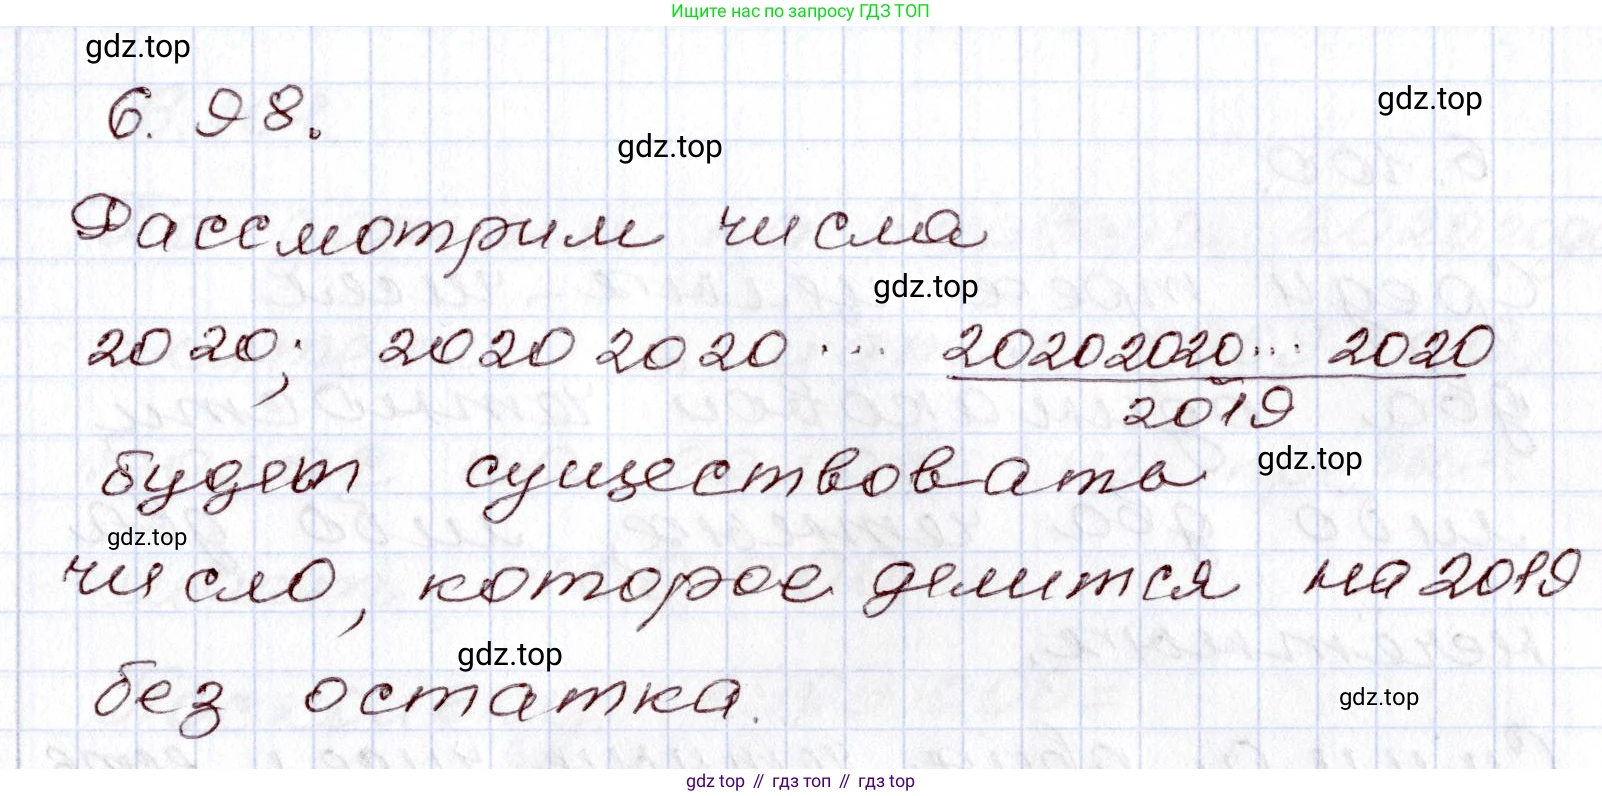 Ищите нас по запросу ГДЗ ТОП
gdz.top
6.98.
gdz.top
gdz.top
Рассмотрим числа
gdz.top
2020; 2020 2020 ... 20202020... 2020
2019
будет существовать
gdz.top
gdz.top
число, которое делится на 2019
gdz.top
без остатка.
gdz.top
gdz top // гдз топ // гдз top